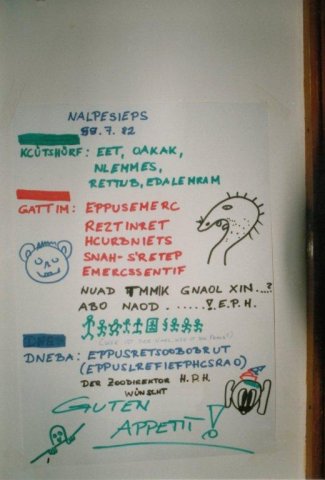 NALPESIEPS
99.7.82
KCÜTSHÜRF: EET, OAKAK,
NLEMMES,
RETTUB, EDALEMRAM
GATTIM: EPPUSEMERC
REZTINRET
HCURBNIETS
SNAH-S'RETEP
EMERCSSENTIF
NUAD TMMIK GNAOL XIN...?
ABO NAOD.......! E.P.H.
DNEBA: ETPUSRETSOOBOBRUT
(EPPUSLREFIEFPHCSRAO)
DER ZOODIREKTOR H.P.H
WÜNSCHT
GUTEN
APPETIT!